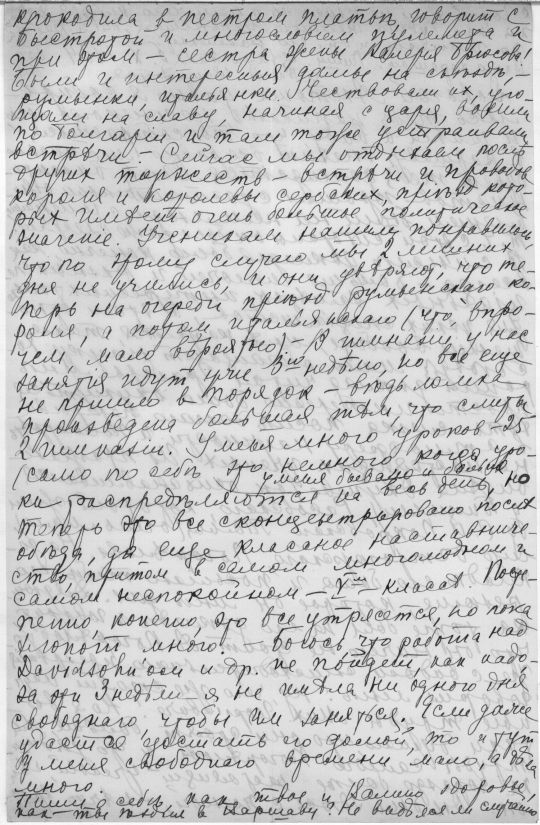 крокодила в пестром платье, говорит с
быстротой и многословием пулемета и
при этом – сестра жены Валерия Брюсова!
Были и интересныя дамы на съезде –
румынки, итальянки. Чествовали их, уго-
щали на славу, начиная с царя, возили
по Болгарии и там тоже устраивали
встречи – Сейчас мы отдыхаем после
других торжеств – встречи и проводов
короля и королевы сербских, приезд кото-
рых имеет очень большое политическое
значение. Ученикам нашим понравилось,
что по этому случаю мы 2 лишних
дня не учились, и они уверяют, что те-
перь на очереди приезд румынскаго ко-
роля, а потом итальянскаго (что, впро-
чем, мало вероятно) – В гимназии у нас
занятия идут уже 3ю неделю, но все еще
не пришло в порядок – ведь ломка
произведена большая тем, что слиты
2 гимназии. У меня много уроков – 25
(само по себе это немного, когда уро-
у меня бывало и больше
ки распределяются на весь день, но
теперь это все сконцентрировано после
обеда, да еще класное наставниче-
ство, притом в самом многолюдном и
самом неспокойном – V классе. Посте-
пенно, конечно, это все утрясется, но пока
хлопот много. – Боюсь, что работа над
Davidsohn'ом и др. не пойдет, как надо –
за эти 3 недели я не имела ни одного дня
свободнаго, чтобы им заняться. Если даже
удастся достать его домой, то и тут
у меня свободнаго времени мало, а дела
много.
Пиши о себе, как твое и Халино здоровье,
как ты ездил в Варшаву? Не виделся ли случайно